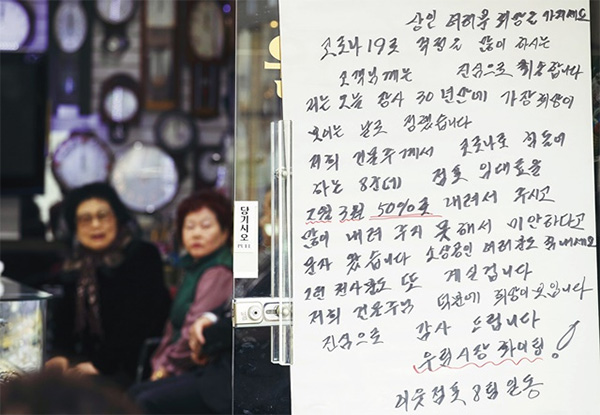 상인 여러분 희망을 가지세요
코로나 19로 걱정을 많이 하시는
고객님께는 진심으로 죄송합니다
저는 오늘 장사 30년만에 가장 희망이
보이는 날로 정했습니다
저희 건물주께서 코로나로 힘들어
하는 8점포에 점포 임대료를
2월 3월 50%로 내려서 주시고
많이 내려 주지 못해서 미안하다고
문자 왔습니다 소상공인 여러분도 힘내세요
이런 천사분도 또 계실겁니다
저희 건물주님 덕분에 희망이 보입니다
진심으로 감사 드립니다
우리시장 화이팅!
이웃점포 8명 일동
당기시오